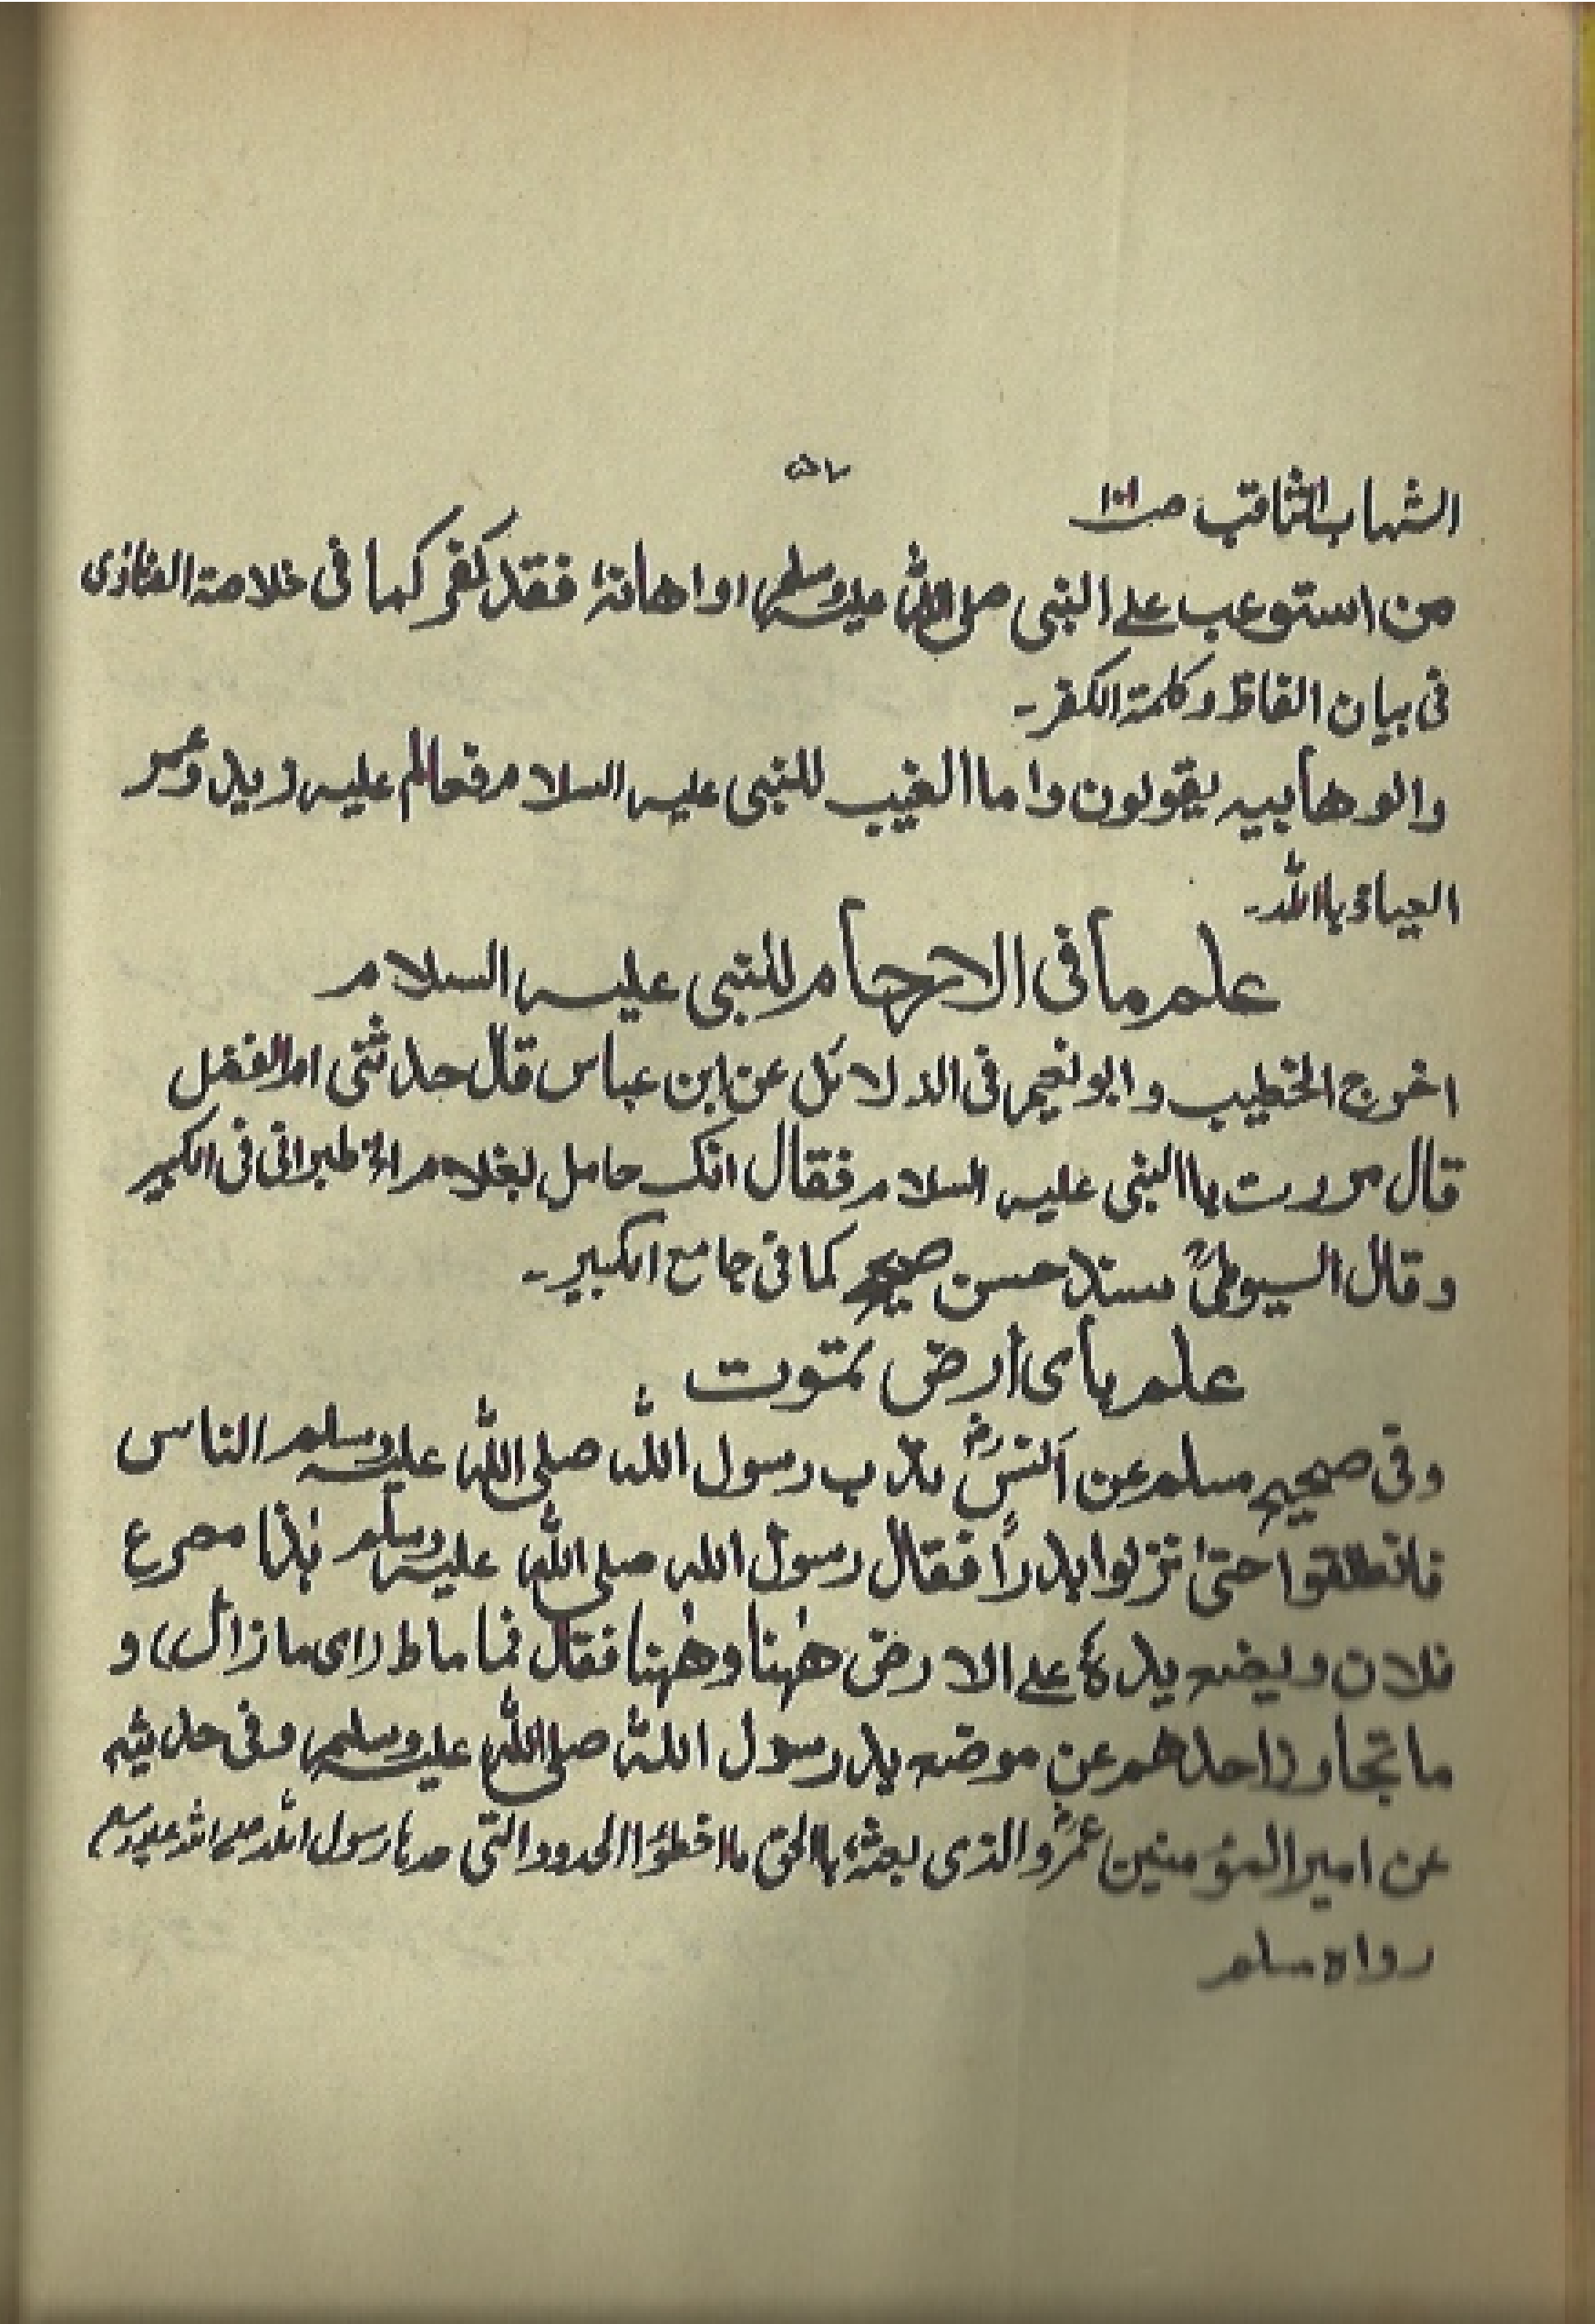 ۵۷
الشہاب الثاقب صـ۱۰۱
من استوعب علے النبی صلی اللہ علیہ وسلم او اھانہٗ فقد کفر کما فی خلاصۃ الفتاوٰی
فی بیان الفاظ وکلمۃ الکفر۔
والوھابیہ یقولون واما الغیب للنبی علیہ السلام فعالم علیہ زید وعمر
العیاذ باللہ۔
علم ما فی الارحام للنبی علیہ السلام
اخرج الخطیب وابو نعیم فی الدلائل عن ابن عباس قال حدثتنی ام الفضل
قال مررت باالنبی علیہ السلام فقال انک حامل بغلام طبرانی فی الکبیر
وقال السیوطیؒ سند حسن صحیح کما فی جامع الکبیر۔
علم بای ارض تموت
وفی صحیح مسلم عن انسؓ ندب رسول اللہ صلی اللہ علیہ وسلم الناس
فانطلقوا حتیٰ نزلوا بدراً فقال رسول اللہ صلی اللہ علیہ وسلم ہٰذا مصرع
فلان ویضع یدہٗ علی الارض ھٰہنا وھٰہنا فقال فما ماط (ای ما زال) و
ما تجاوز احدھم عن موضع ید رسول اللہ صلی اللہ علیہ وسلم وفی حدیثہ
عن امیر المؤمنین عمرؓ والذی بعثہٗ باالحق ما اخطؤا الحدود التی حدہا رسول اللہ صلی اللہ علیہ وسلم
رواہ مسلم